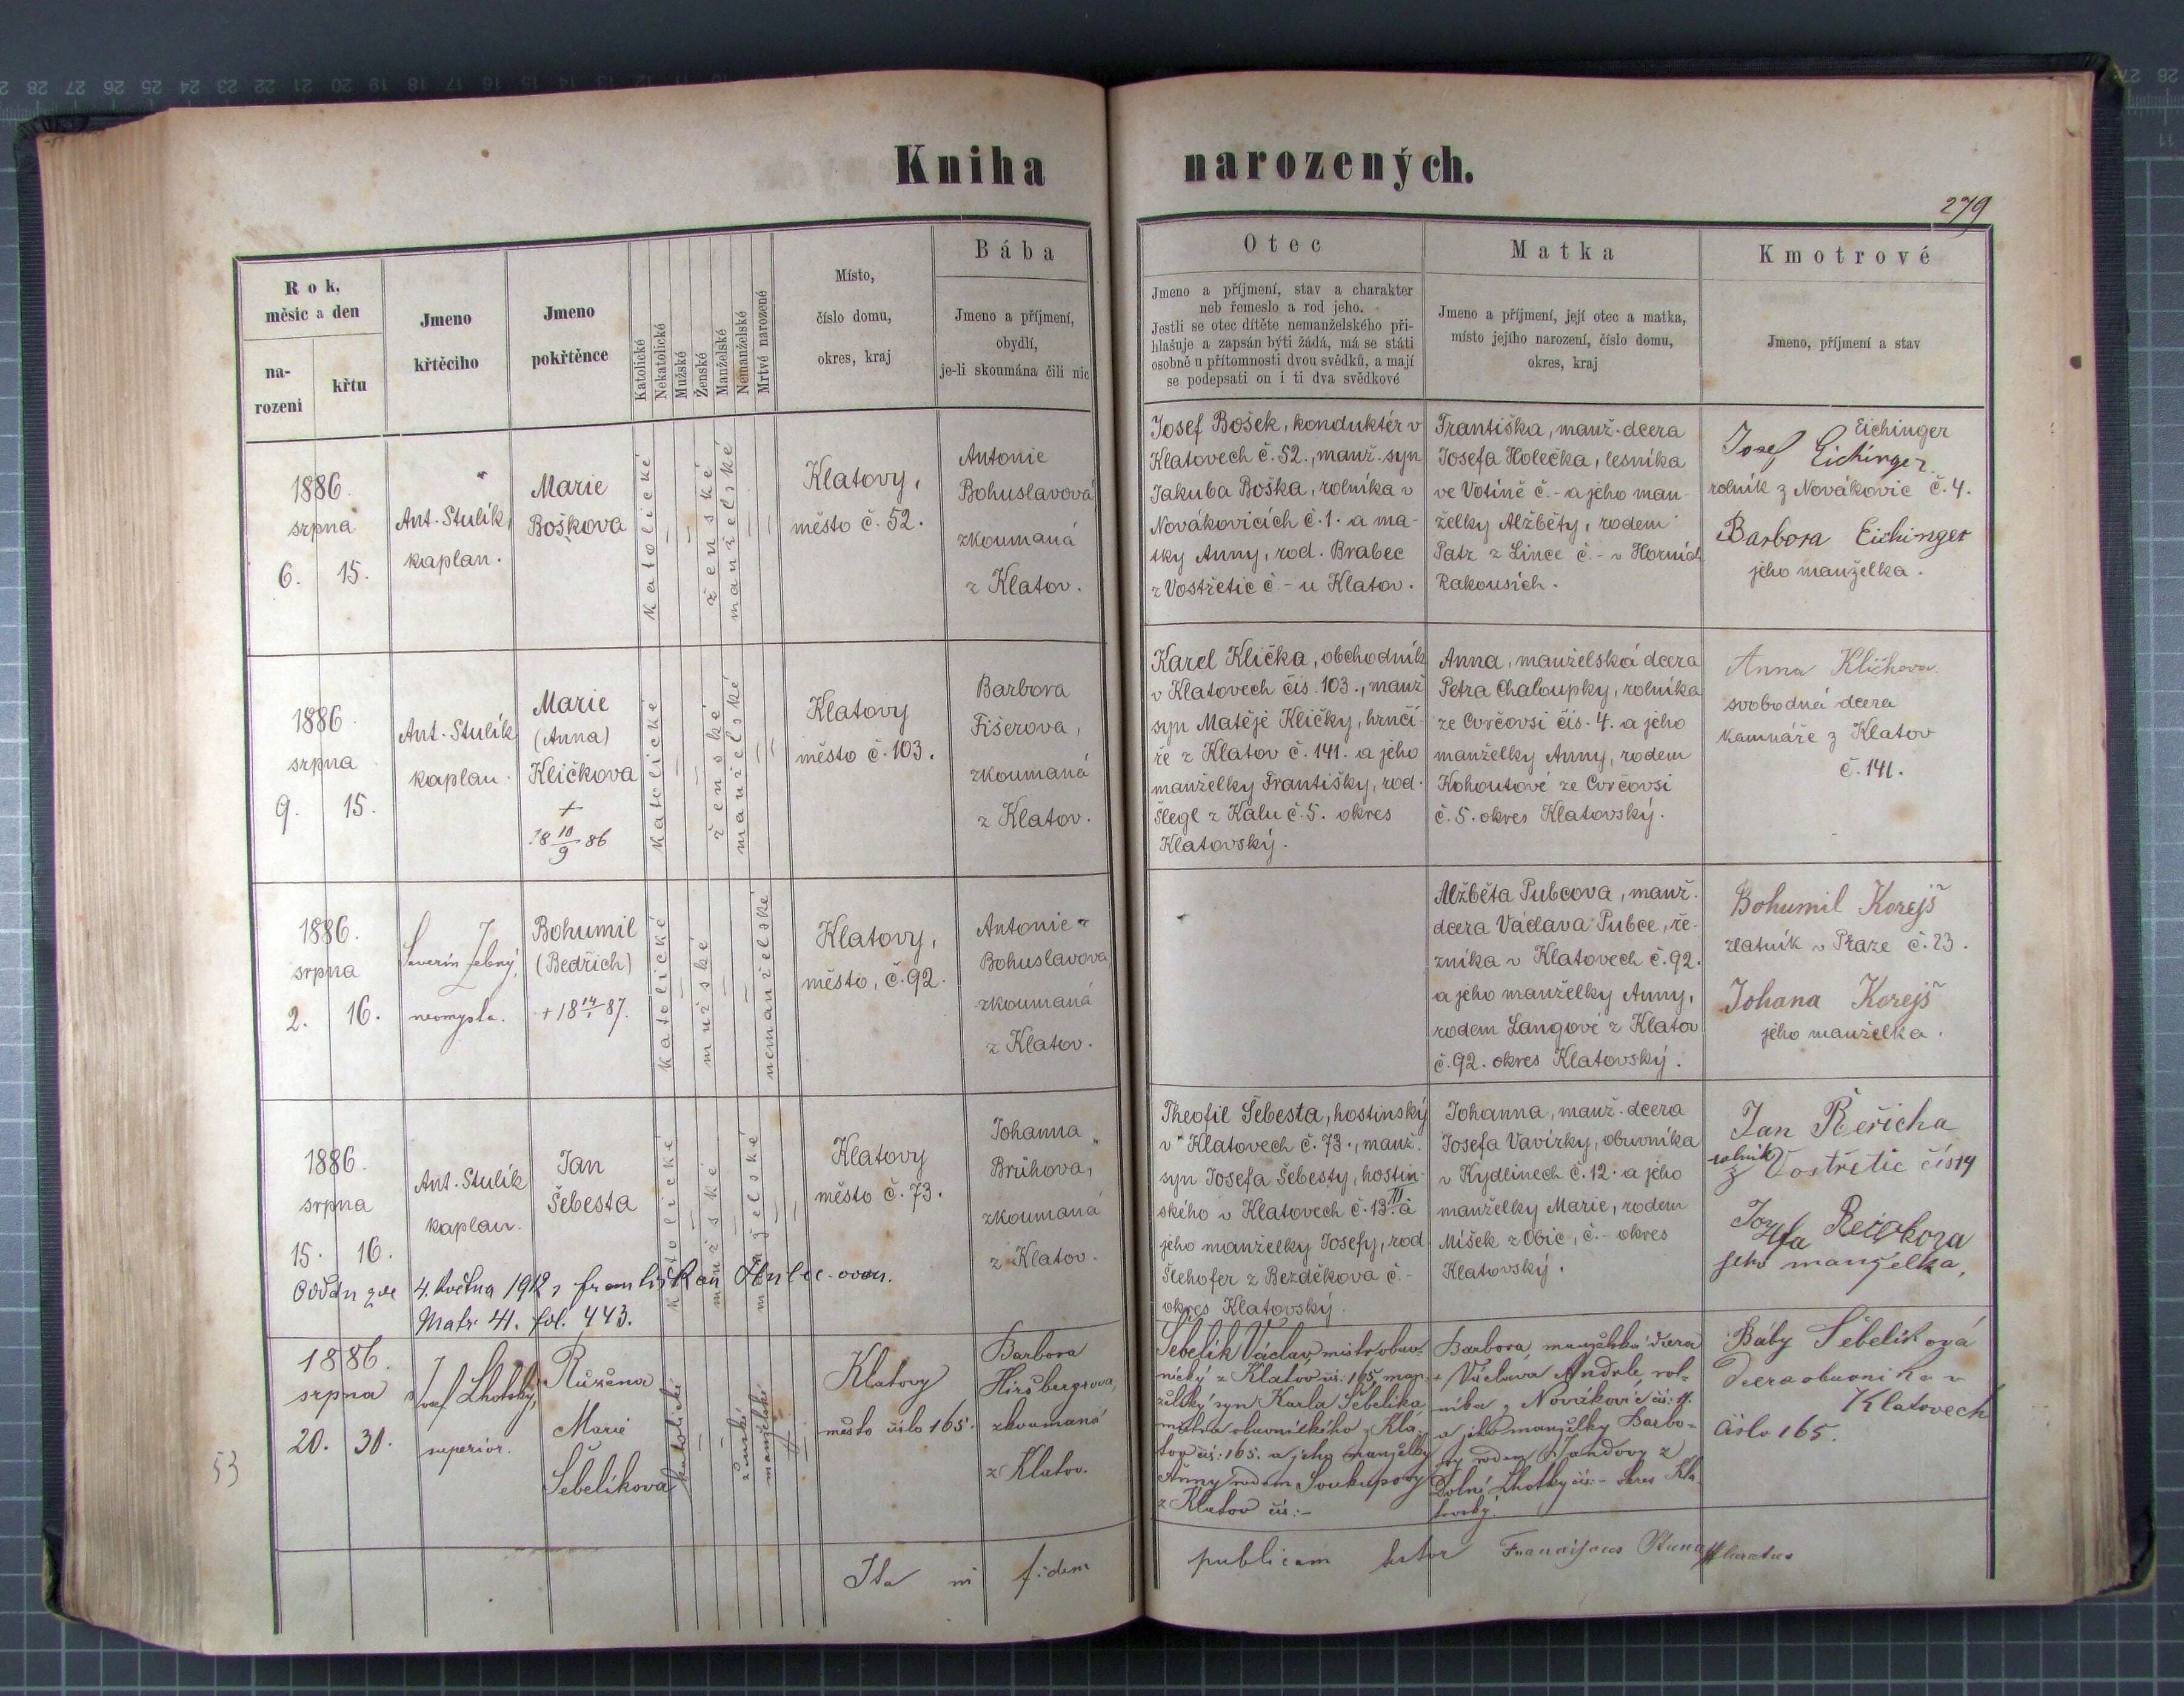 Kniha narozených.
279
Rok,
měsíc a den
na-
rozeni
křtu
Jmeno
křtěcího
Jmeno
pokřtěnce
Katolické
Nekatolické
Mužské
Ženské
Manželské
Nemanželské
Mrtvé narozené
Místo,
číslo domu,
okres, kraj
Bába
Jmeno a příjmení,
obydlí,
je-li skoumána čili nic
Otec
Jmeno a příjmení, stav a charakter
neb řemeslo a rod jeho.
Jestli se otec dítěte nemanželského při-
hlašuje a zapsán býti žádá, má se státi
osobně u přítomnosti dvou svědků, a mají
se podepsati on i ti dva svědkové
Matka
Jmeno a příjmení, její otec a matka,
místo jejího narození, číslo domu,
okres, kraj
Kmotrové
Jmeno, příjmení a stav
1886.
srpna
6. 15.
Ant. Stulík,
kaplan.
Marie
Boškova
katolické
ženské
manželské
Klatovy,
město č. 52.
Antonie
Bohuslavová
zkoumaná
z Klatov.
Josef Bošek, konduktér v
Klatovech č. 52., manž. syn
Jakuba Boška, rolníka v
Novákovicích č. 1. a ma-
tky Anny, rod. Brabec
z Vostřetic č - u Klatov.
Františka, manž. dcera
Josefa Holečka, lesníka
ve Votíně č. - a jeho man-
želky Alžběty, rodem
Patz z Lince č. - v Horních
Rakousích.
Eichinger
Josef Eichinger
rolník z Novákovic č. 4.
Barbora Eichinger
jeho manželka.
1886.
srpna
9. 15.
Ant. Stulík
kaplan.
Marie
(Anna)
Kličkova
+
18 10/9 86
katolické
ženské
manželské
Klatovy
město č. 103.
Barbora
Fišerova,
zkoumaná
z Klatov.
Karel Klička, obchodník
v Klatovech čís. 103., manž
syn Matěje Kličky, hrnčí-
ře z Klatov č. 141. a jeho
manželky Františky, rod.
Šlegl z Kalu č. 5. okres
Klatovský.
Anna, manželská dcera
Petra Chaloupky, rolníka
ze Cvrčovsi čís. 4. a jeho
manželky Anny, rodem
Kohoutové ze Cvrčovsi
č. 5. okres Klatovský.
Anna Kličkova
svobodná dcera
kamnáře z Klatov
č. 141.
1886.
srpna
2. 16.
Severin
Bohumil
(Bedřich)
+ 18 14/1 87.
katolické
mužské
nemanželské
Klatovy,
město, č. 92.
Antonie
Bohuslavova,
zkoumaná
z Klatov.
Alžběta Pubcova, manž.
dcera Václava Pubce, ře-
zníka v Klatovech č. 92.
a jeho manželky Anny,
rodem Langové z Klatov
č. 92. okres Klatovský.
Bohumil Korejš
zlatník v Praze č. 23.
Johana Korejš
jeho manželka.
1886.
srpna
15. 16.
Ant. Stulík
kaplan.
Jan
Šebesta
katolické
mužské
manželské
Klatovy
město č. 73.
Johanna
Brůhova,
zkoumaná
z Klatov.
Theofil Šebesta, hostinský
v Klatovech č. 73., manž.
syn Josefa Šebesty, hostin-
ského v Klatovech č. 13 III. a
jeho manželky Josefy, rod
Šlehofer z Bezděkova č. -
okres Klatovský.
Johanna, manž. dcera
Josefa Vavírky, obuvníka
v Kydlinech č. 12. a jeho
manželky Marie, rodem
Míšek z Obic, č. - okres
Klatovský.
Jan Řeřicha
rolník
z Vostřetic čís 14
Jozefa
jeho manželka,
Oddán zde 4. května 1912 s
Matr 41. fol. 443.
1886.
srpna
20. 30.
Josef Lhotský,
superior.
Růžena
Marie
Šebelíková
katolické
ženské
manželské
Klatovy
město číslo 165.
Barbora
Hiršbergrova,
zkoumaná
z Klatov.
Šebelík Václav, mistr obuv-
nický z Klatov čís: 165, man-
želský syn Karla Šebelíka
mistra obuvnického z Kla-
tov čís: 165. a jeho manželky
Anny rodem Soukupovy
z Klatov čís: -
Barbora, manželská dcera
+ Václava Andrle, rol-
níka z Novákovic čís: 11.
a jeho manželky Barbo-
ry rodem Jandovy z
Dolní Lhotky čís: - okres Kla-
tovský.
Báby Šebelíková
dcera obuvníka v
Klatovech
číslo 165.
53
Ita
fidem
publicam testor